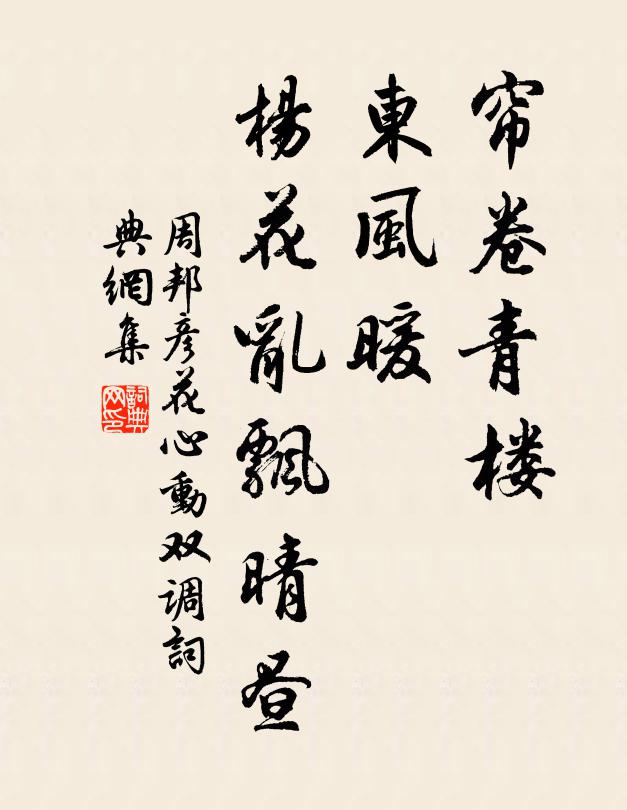 帘卷青楼
東風暖
楊花亂飄晴昼
周邦彦花心動双调詞
典網集
詞典网印